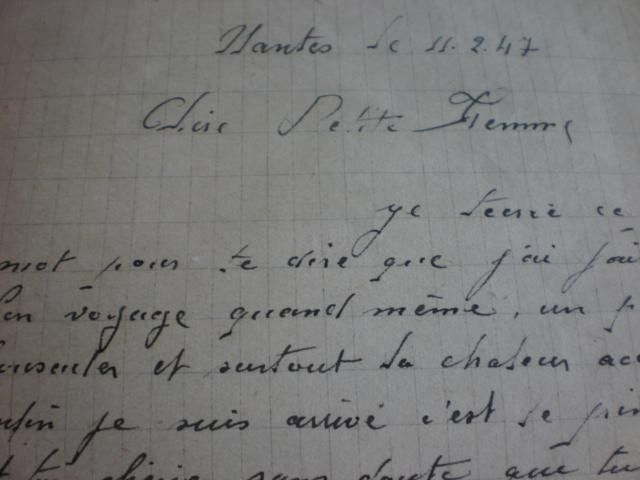 Nantes le 11.2.47
Chère Petite Femme
je t'écris ce
mot pour te dire que j'ai fai
bon voyage quand même, un p
bousculer et surtout la chaleur acc
enfin je suis arrivé c'est le prin
et toi chérie sans doute que tu